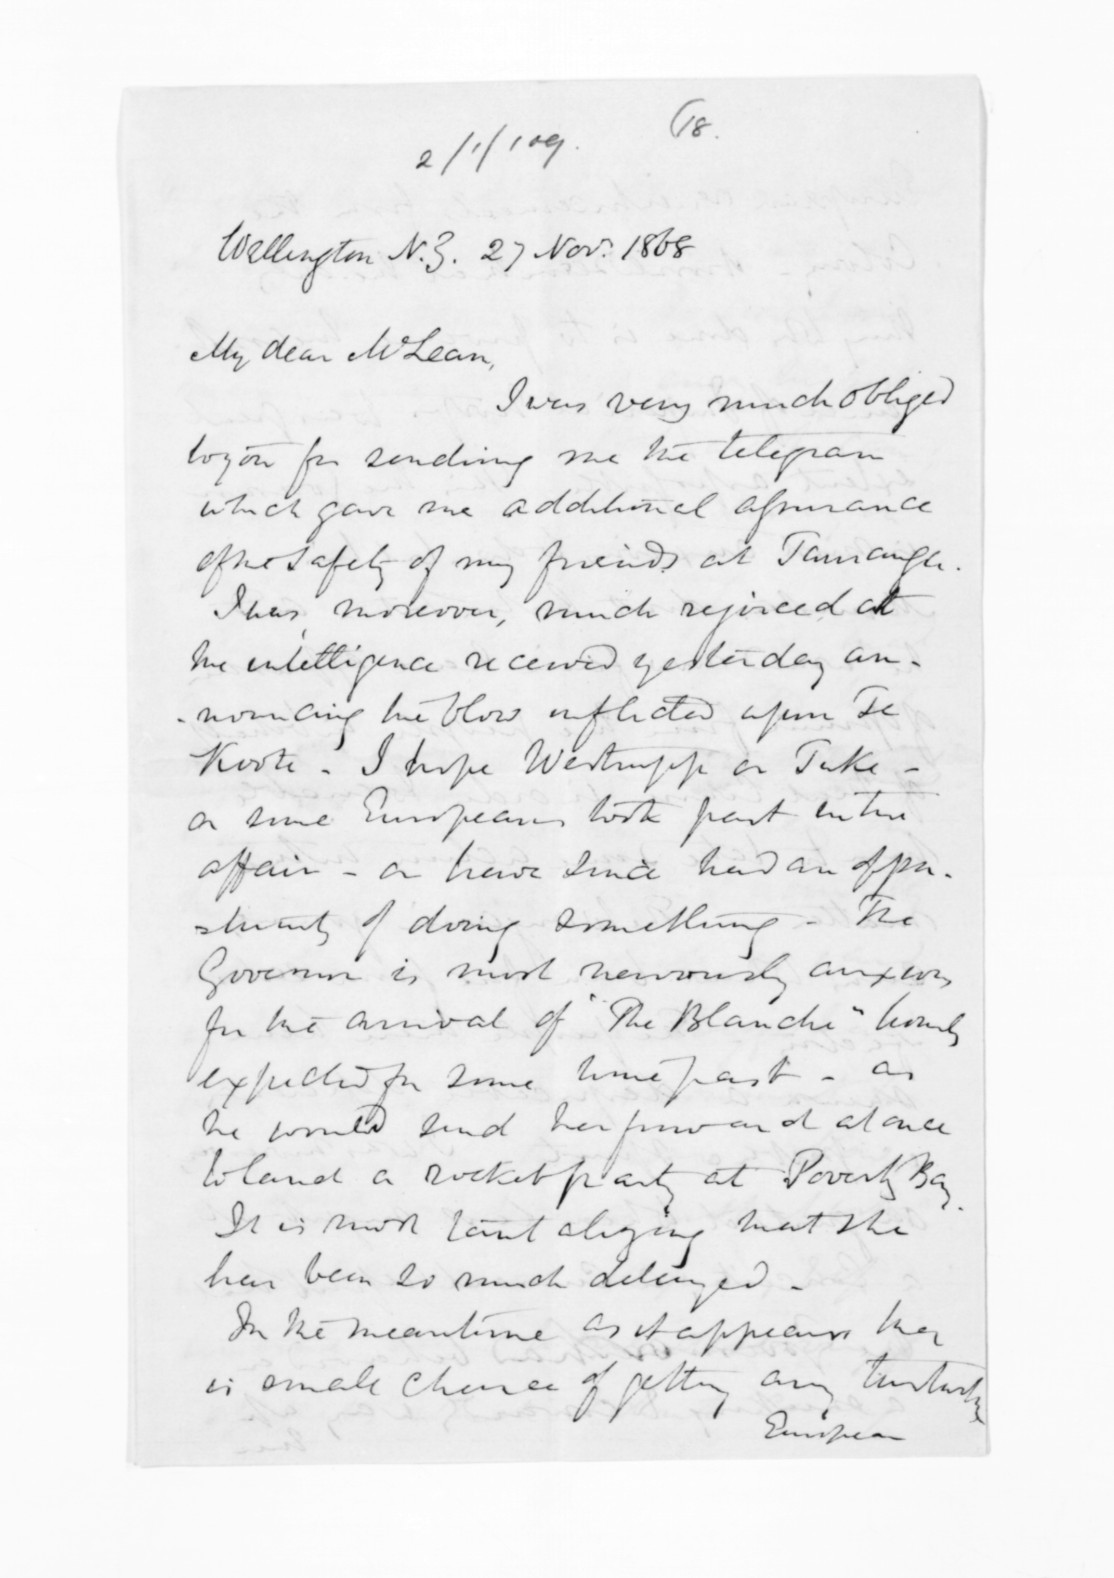 2/1/109.
(18.
Wellington N.Z. 27 Nov. 1868
My dear McLean,
I was very much obliged
to you for sending me the telegram
which gave me additional assurance
of the safety of my friends at Tauranga.
I was, moreover, much rejoiced at
the intelligence received yesterday an-
-nouncing the blow inflicted upon Te
Koote - I hope Westrupp or Tuke -
or some Europeans took part in the
affair - or have since had an oppor-
-tunity of doing something - The
Governor is most nervously anxious
for the arrival of "The Blanche" hourly
expected for some time past - as
he would send her forward at once
to land a rocket party at Poverty Bay.
It is most tantalizing that she
has been so much delayed -
In the meantime as it appears there
is small chance of getting any trustworthy
European